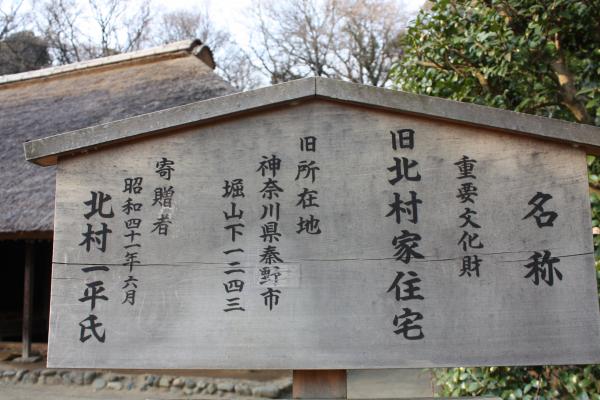 名称
重要文化財
旧北村家住宅
旧所在地
神奈川県秦野市
堀山下一二四三
寄贈者
昭和四十一年六月
北村一平氏